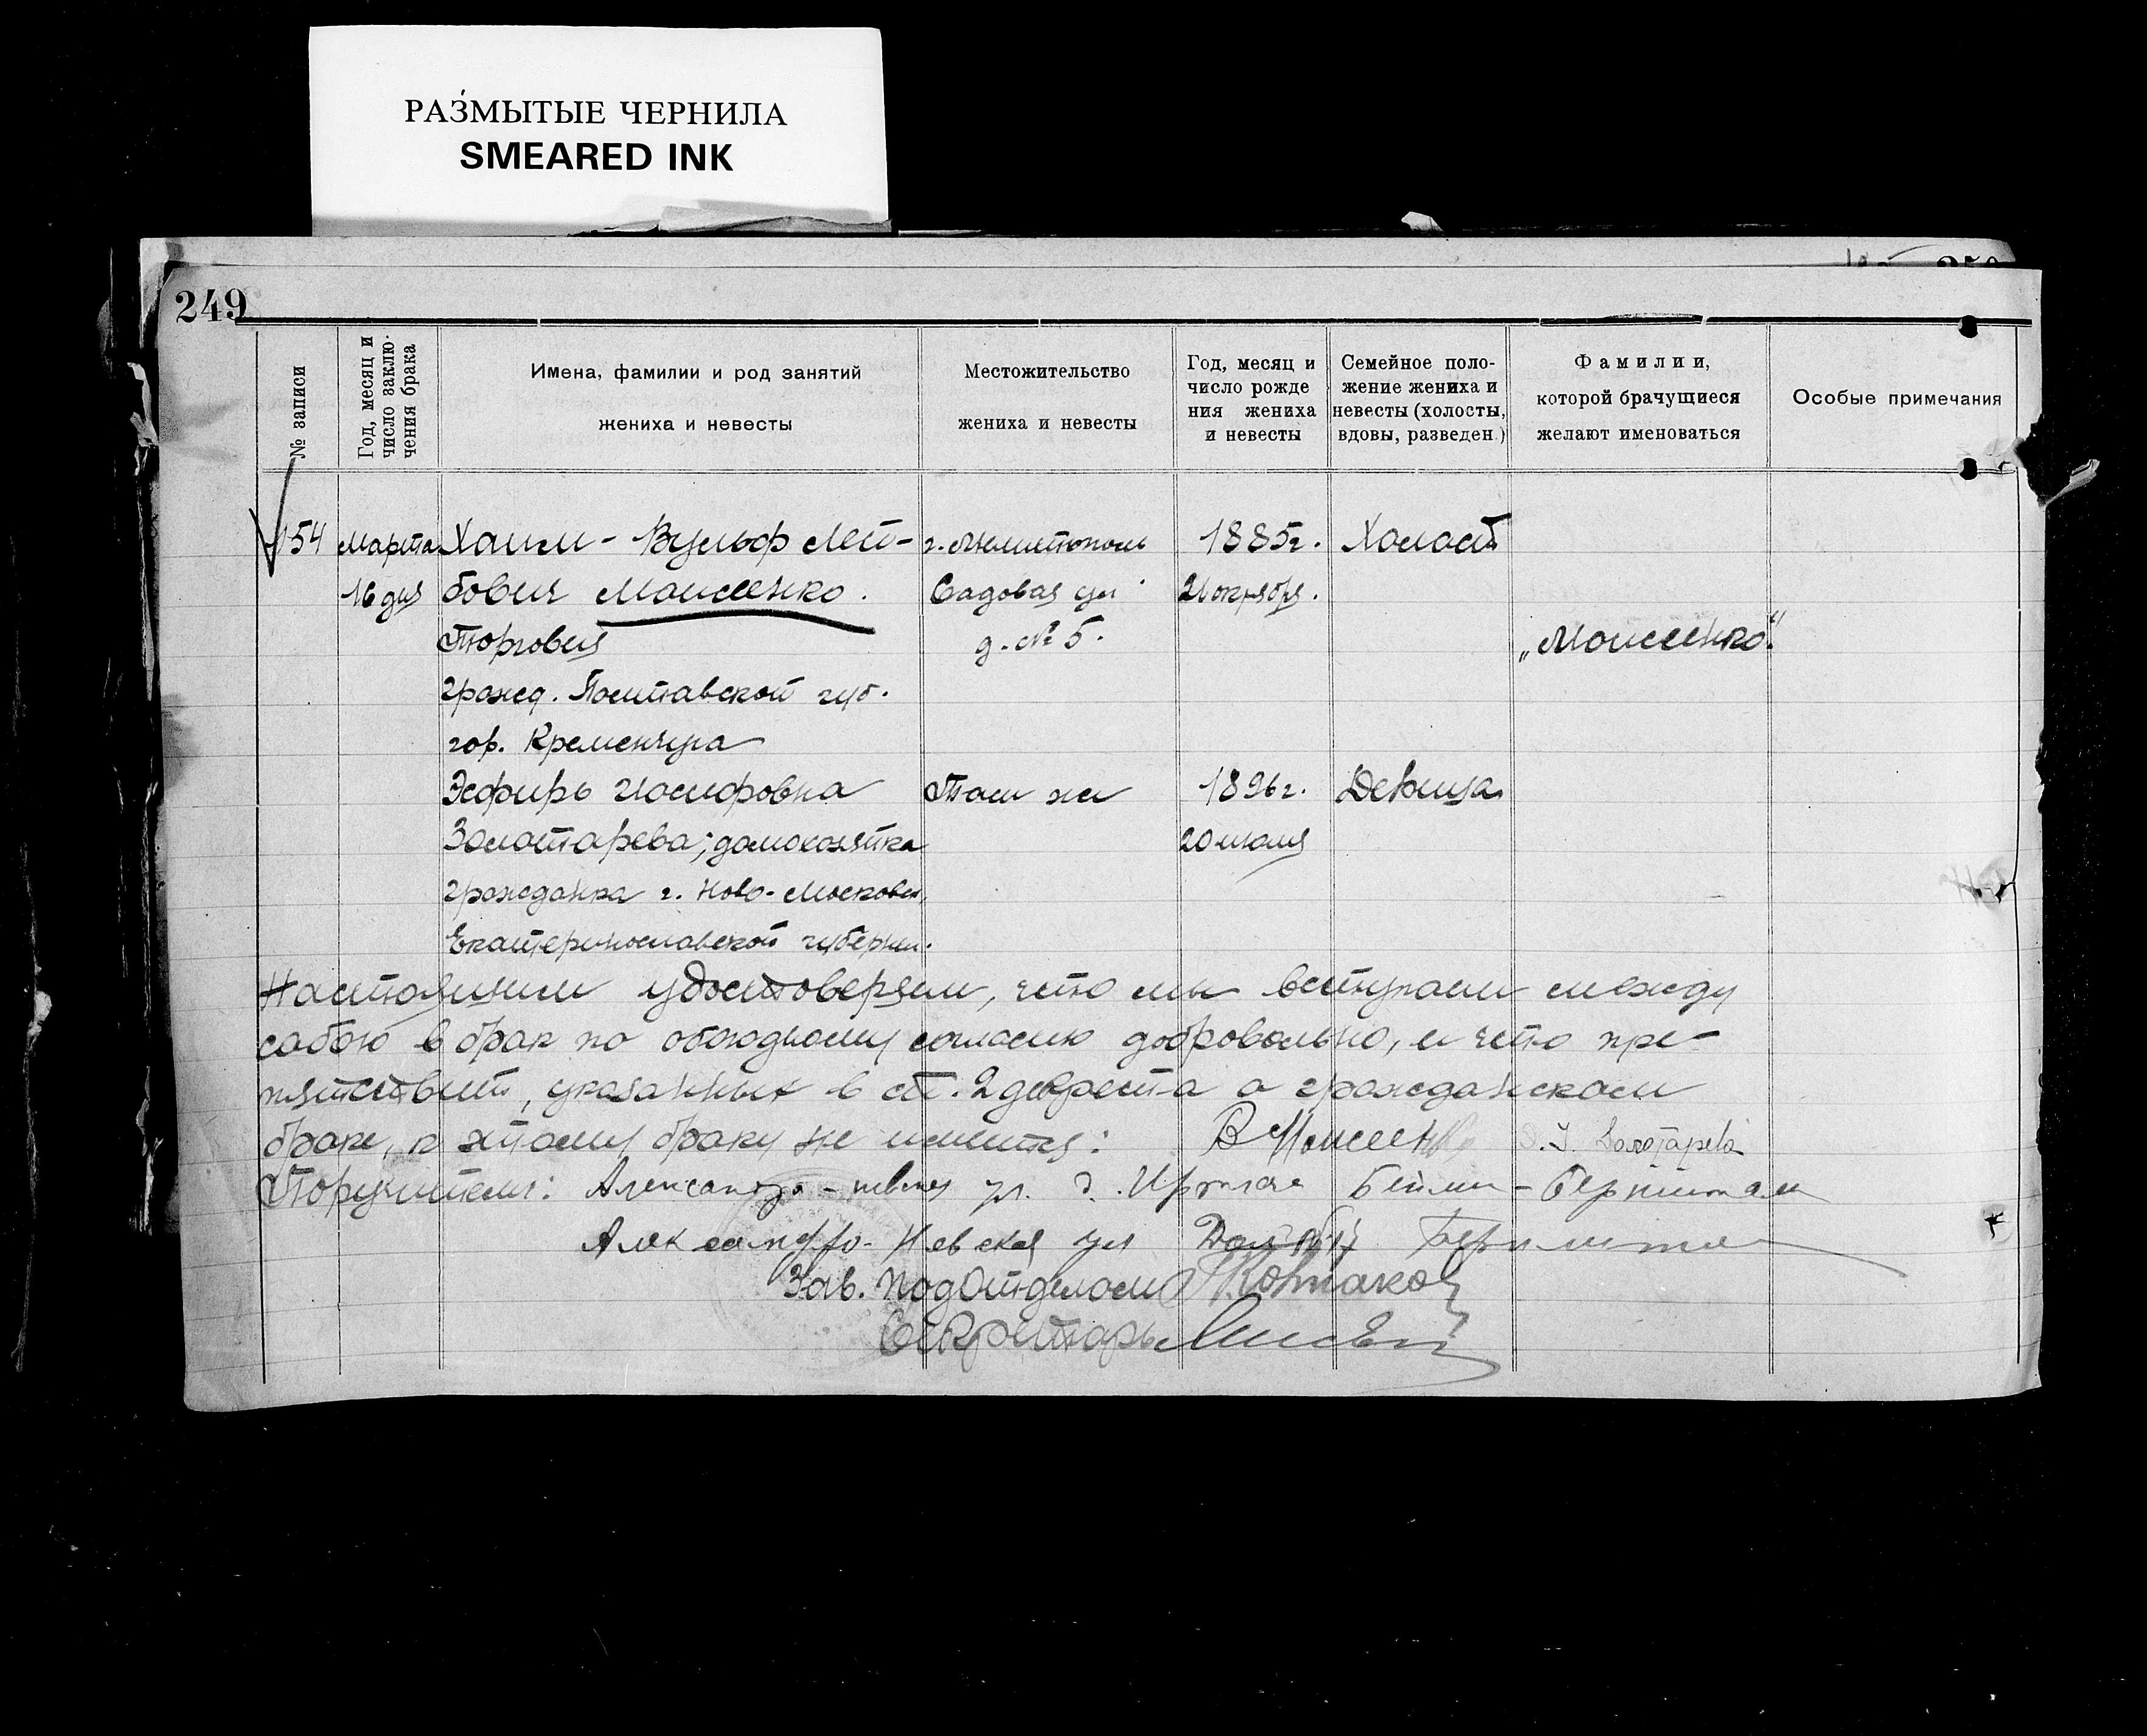 РАЗМЫТЫЕ ЧЕРНИЛА
SMEARED INK
249
№ записи
Год, месяц и число заклю-чения брака
Имена, фамилии и род занятий
жениха и невесты
Местожительство
жениха и невесты
Год, месяц и
число рожде
ния жениха
и невесты
Семейное поло-
жение жениха и
невесты (холосты,
вдовы, разведен.)
Фамилии,
которой брачущиеся
желают именоваться
Особые примечания
154 Марта Хаим - Вульф Лей- г. Мелитополь 1885г. Холост
16 дня бович Моисеенко. Садовая ул 21 октября.
Торговец д. № 5. „Моисеенко."
гражд. Полтавской губ.
гор. Кременчуга
Эсфирь Иосифовна Там же 1896г. Девица
Золотарева; домохозяйка 20 июля
гражданка г. Ново-Московск,
Екатеринославской губернии.
Настоящим удостоверяем, что мы вступаем между
собою в брак по обоюдному согласию добровольно, и что пре-
пятствий, указанных в ст. 2 декрета о гражданском
браке, к этому браку не имеется: В Моисеенко Э. И. Золотарева
Поручители: ул. д.
Александро-Невская ул Дом № 17
Зав. подотделом
Секретарь